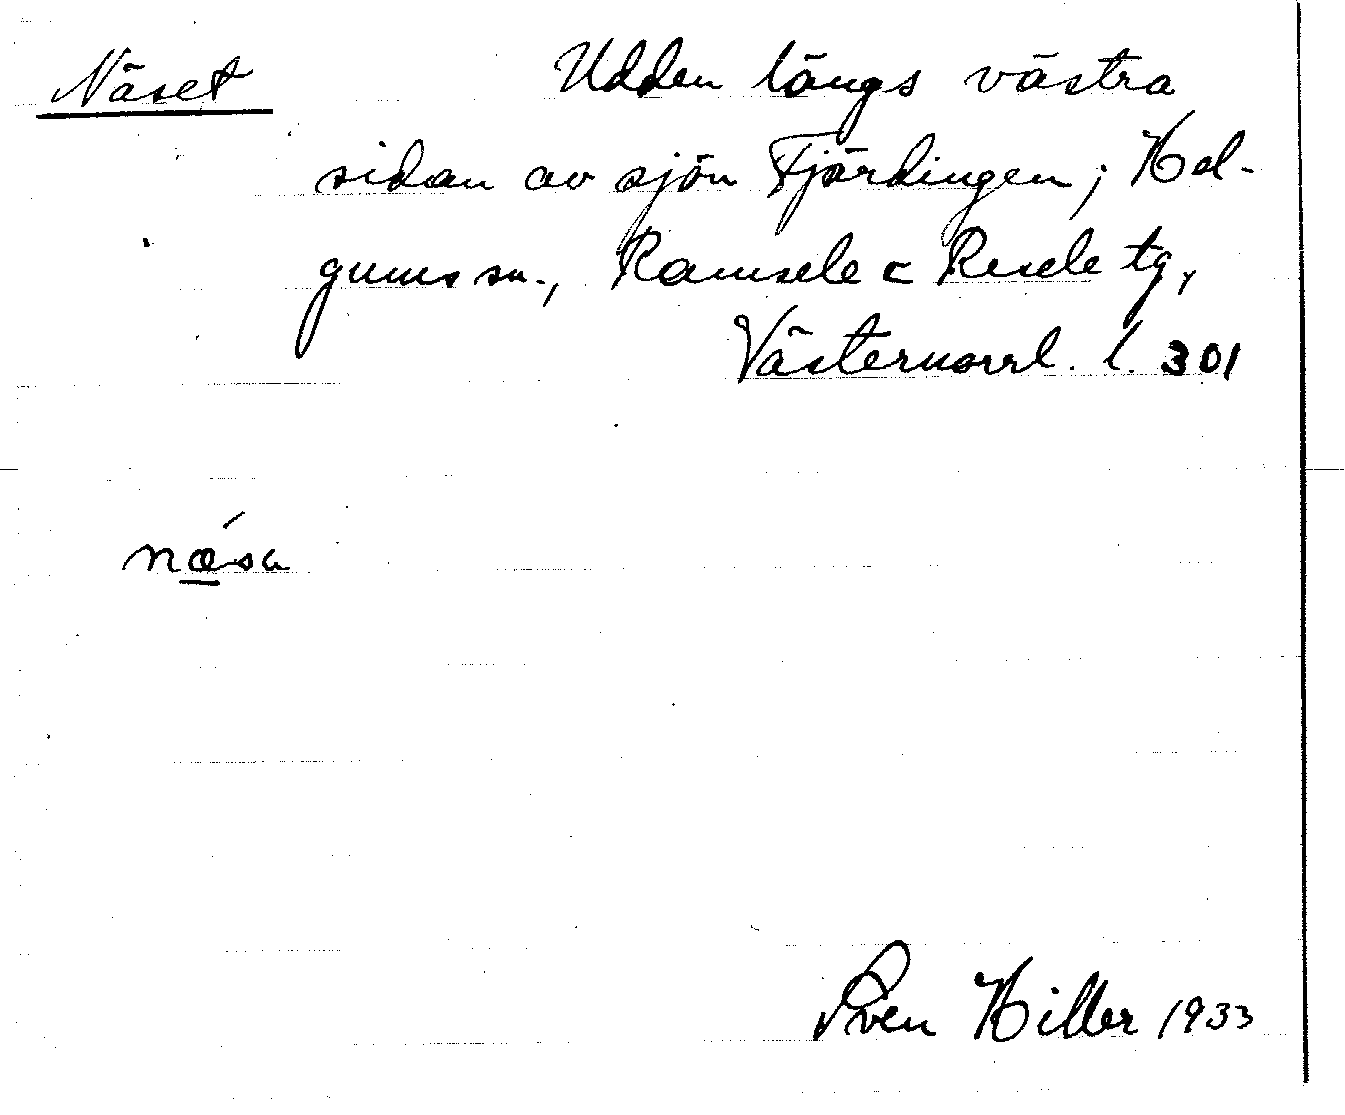 Näset Udden längs västra
sidan av sjön Fjärdingen; Hel-
gums sn., Ramsele o Resele tg,
Västernorrl. l. 301
nǽ̲sa
Sven Hiller 1933